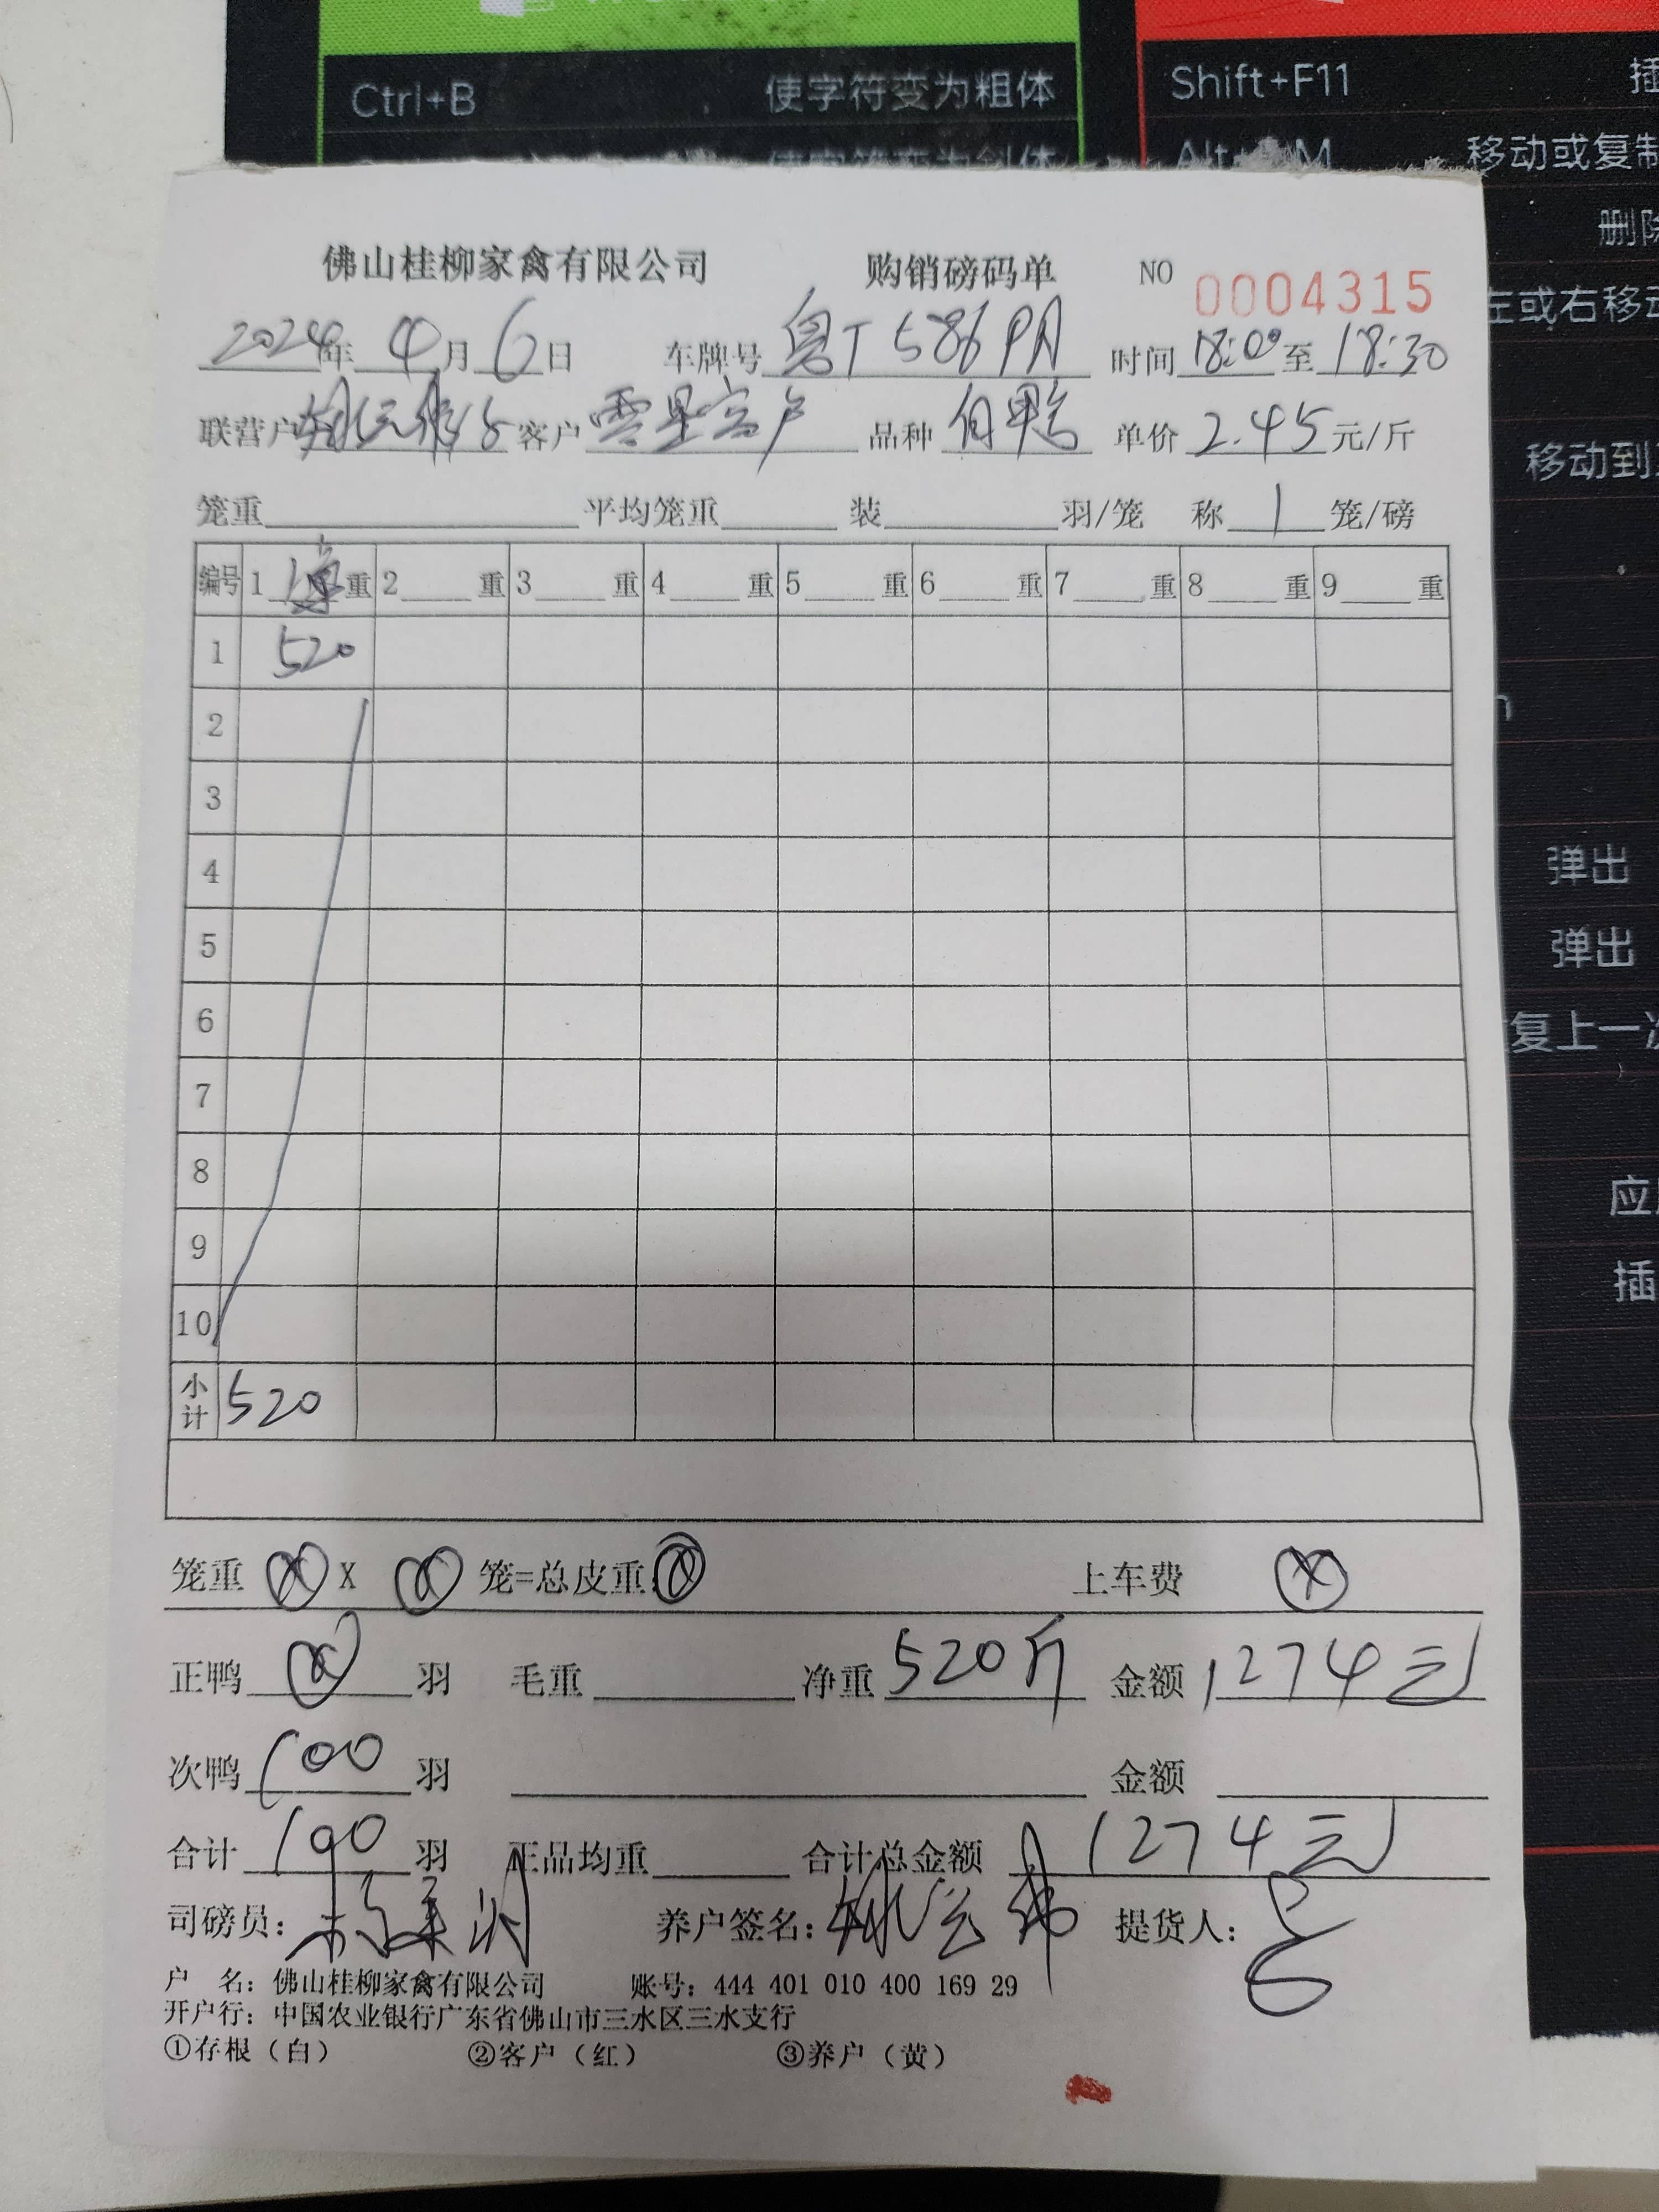 Ctrl+B 使字符变为粗体 Shift+F11 插
移动或复制
删除
左或右移动
移动到
弹出
弹出
复上一次
应用
插
佛山桂柳家禽有限公司 购销磅码单 NO 0004315
2024年 4月 6日 车牌号 粤T 586PA 时间 18:00 至 18:30
联营户 客户 零星客户 品种 白鸭 单价 2.45 元/斤
笼重 平均笼重 装 羽/笼 称 1 笼/磅
编号 1 重 2 重 3 重 4 重 5 重 6 重 7 重 8 重 9 重
1 520
2
3
4
5
6
7
8
9
10
小计 520
笼重 X 笼=总皮重: 上车费
正鸭 羽 毛重 净重 520斤 金额 1274元
次鸭 100 羽 金额
合计 100 羽 正品均重 合计总金额 1274元
司磅员: 养户签名: 提货人:
户 名: 佛山桂柳家禽有限公司 账号: 444 401 010 400 169 29
开户行: 中国农业银行广东省佛山市三水区三水支行
①存根（白） ②客户（红） ③养户（黄）